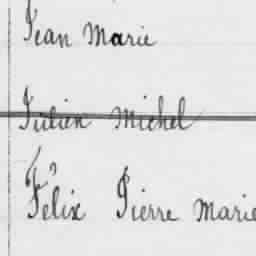 Jean Marie
Julien Michel
Félix Pierre Marie